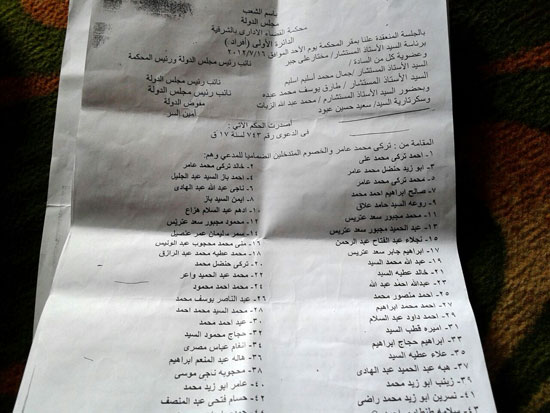 باسم الشعب
مجلس الدولة
محكمة القضاء الادارى بالشرقية
الدائرة الأولى ( أفراد )
بالجلسة المنعقدة علنا بمقر المحكمة يوم الاحد الموافق
برئاسة السيد الأستاذ المستشار/ مختار على جبر نائب رئيس مجلس الدولة ورئيس المحكمة
وعضوية كل من السادة /
السيد الأستاذ المستشار/ جمال محمد أسليم اسليم نائب رئيس مجلس الدولة
السيد الأستاذ المستشار / طارق يوسف محمد عبده نائب رئيس مجلس الدولة
وبحضور السيد الأستاذ المستشار/ محمد عبد الله الزيات مفوض الدولة
وسكرتارية السيد/ سعيد حسين عبود أمين السر
أصدرت الحكم الآتي :
فى الدعوى رقم ٧٤٣ لسنة ١٧ ق
المقامة من : تركي محمد عامر والخصوم المتدخلين انضماميا للمدعي وهم:
١- احمد تركى محمد على
٢- خالد تركى محمد عامر
٣- ابو زيد حنضل محمد عامر
٤- احمد باز السيد عبد الجليل
٥- محمد تركى محمد عامر
٦- ناجى عبد الله عبد الهادى
٧- صالح ابراهيم احمد محمد
٨- ايمن السيد باز
٩- روعه السيد حامد علاق
١٠- ادهم عبد السلام هزاع
١١- محمد مجبور سعد عتريس
١٢- محمود مجبور سعد عتريس
١٣- عبد الحميد مجبور سعد عتريس
١٤- سمر سليمان عمر
١٥- نجلاء عبد الفتاح عبد الرحمن
١٦- منى محمد محجوب عبد الونيس
١٧- ابراهيم جابر سعد عتريس
١٨- محمد عطيه محمد عبد الرازق
١٩- عبد الله محمد السيد
٢٠- تركى حنضل محمد
٢١- خالد عطيه السيد
٢٢- محمد عبد الحميد واعر
٢٣- عبدالله احمد عبد الله
٢٤- محمد احمد محمود
٢٥- احمد منصور محمد
٢٦- عبد الناصر يوسف محمد
٢٧- احمد محمد ابراهيم
٢٨- محمد السيد محمد احمد
٢٩- احمد داود عبد السلام
٣٠- عيد احمد محمد
٣١- اميره قطب السيد
٣٢- حجاج محمود السيد
٣٣- ابراهيم حجاج ابراهيم
٣٤- انغام عباس مصرى
٣٥- علاء عطيه السيد
٣٦- هاله عبد المنعم ابراهيم
٣٧- هبه عبد الحميد عبد الهادى
٣٨- محجوبه ناجى موسى
٣٩- زينب ابو زيد محمد
٤٠- عامر ابو زيد محمد
٤١- نسرين ابو زيد محمد راضى
٤٢- حسام فتحى عبد المنصف
٤٣-